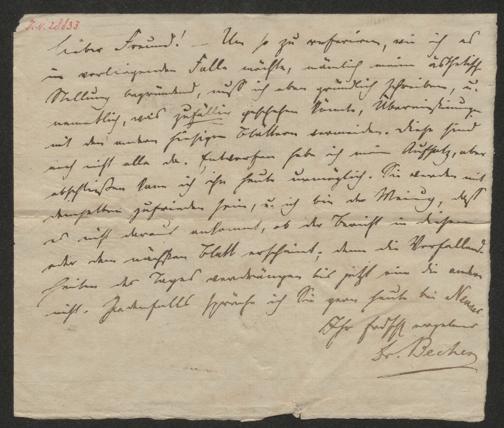 I.N. 28633
Lieber Freund! – Um so zu referiren, wie ich es
im vorliegenden Falle möchte, nämlich meine ästhetische
Stellung begründend, muß ich eben gründlich schreiben, u.
namentlich, was zufällig geschehen könnte, Übereinstimmung
mit den andern hiesigen Blättern vermeiden. Diese sind
noch nicht alle da. Entworfen hab ich meinen Aufsatz, aber
abschließen kann ich ihn heute unmöglich. Sie werden mit
demselben zufrieden sein, u. ich bin der Meinung, daß
es nicht darauf ankommt, ob der Bericht in diesem
oder dem nächsten Blatt erscheint; denn die Vorfallen-
heiten des Tages verdrängen bis jetzt eine die andere
nicht. Jedenfalls spräche ich Sie gern heute bei
Ihr ergebener
Dr. Becher